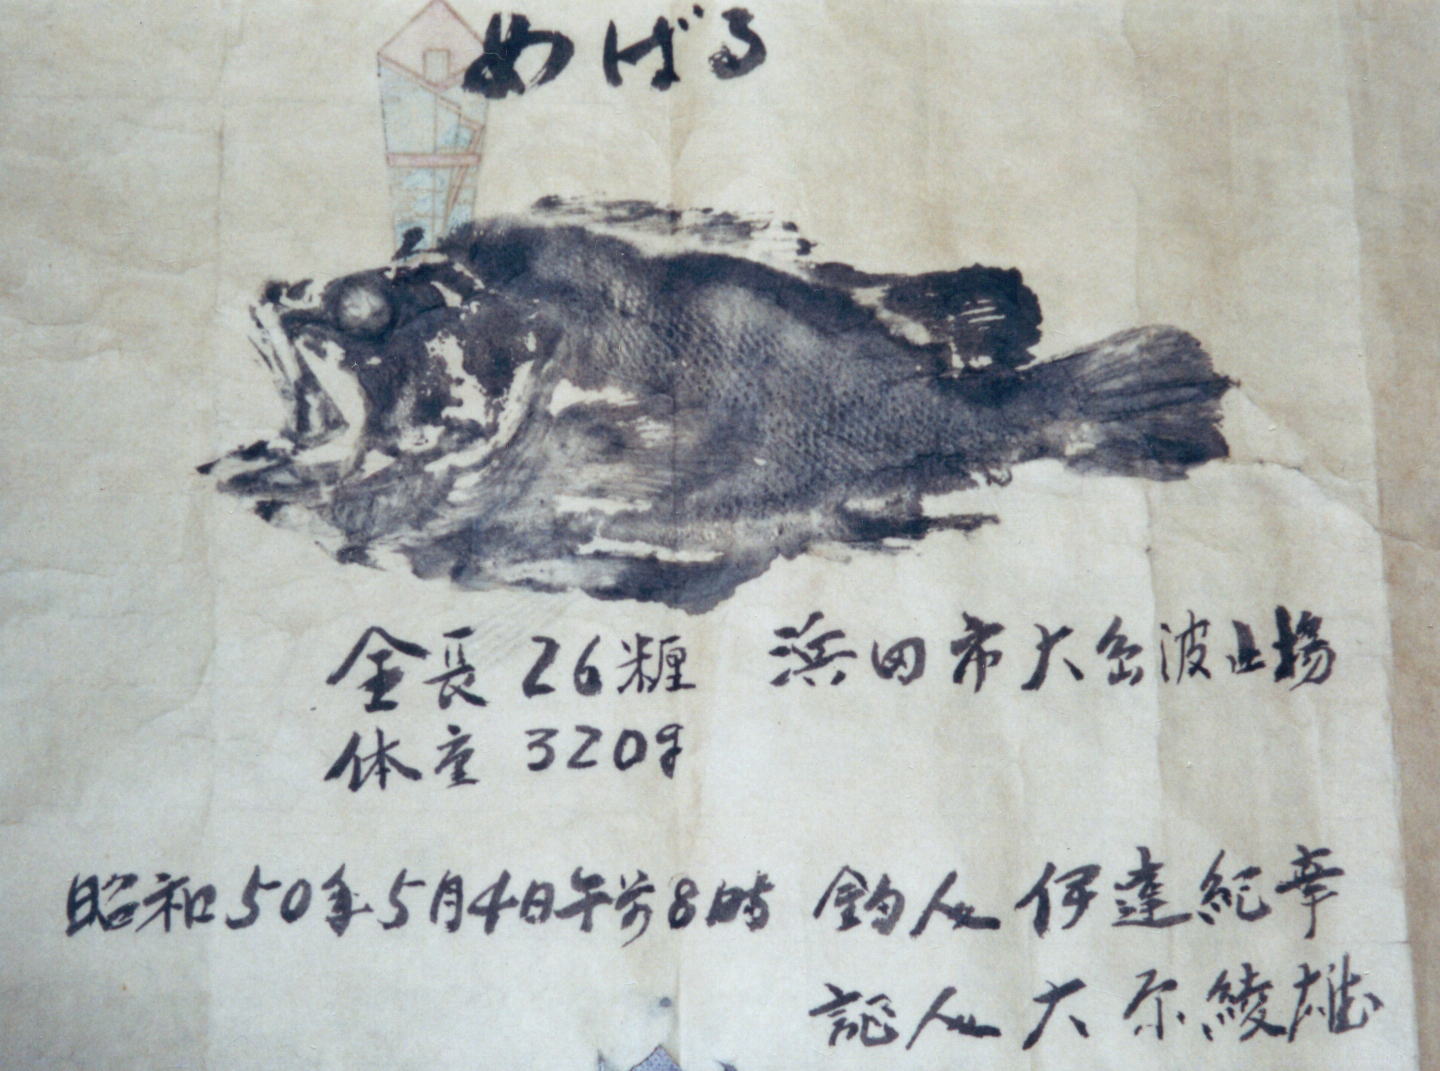 めばる
全長 26糎 浜田市大島波止場
体重 320g
昭和50年5月4日午前8時 釣人 伊達紀幸
証人 大 綾雄